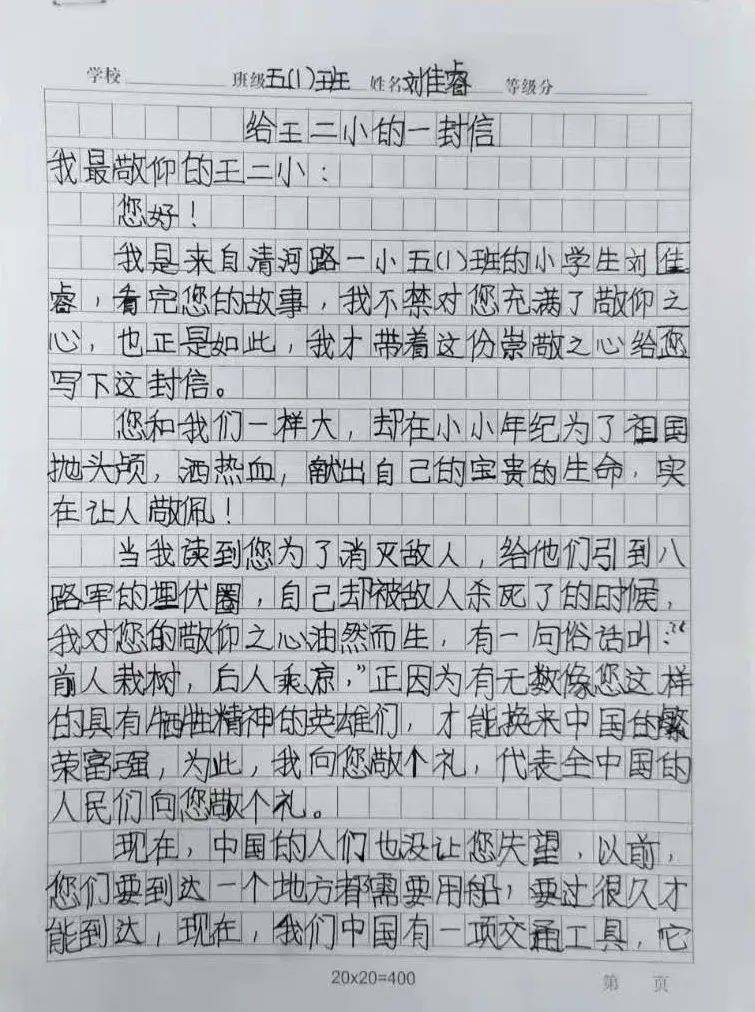 学校 班级五(1)班 姓名刘佳睿 等级分
给王二小的一封信
我最敬仰的王二小：
您好！
我是来自清河路一小五(1)班的小学生刘佳
睿，看完您的故事，我不禁对您充满了敬仰之
心，也正是如此，我才带着这份崇敬之心给您
写下这封信。
您和我们一样大，却在小小年纪为了祖国
抛头颅，洒热血，献出自己的宝贵的生命，实
在让人敬佩！
当我读到您为了消灭敌人，给他们引到八
路军的埋伏圈，自己却被敌人杀死了的时候，
我对您的敬仰之心油然而生，有一句俗话叫：“
前人栽树，后人乘凉，”正因为有无数像您这样
的具有牺牲精神的英雄们，才能换来中国的繁
荣富强，为此，我向您敬个礼，代表全中国的
人民们向您敬个礼。
现在，中国的人们也没让您失望，以前，
您们要到达一个地方都需要用船，要过很久才
能到达，现在，我们中国有一项交通工具，它
20x20=400
第 页